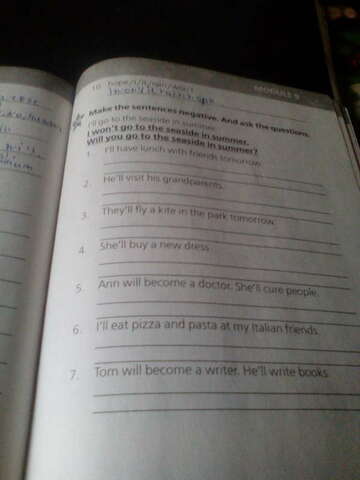 MODULE 8
10. hope/it/rain/won't
Make the sentences negative. And ask the questions.
I'll go to the seaside in summer.
I won't go to the seaside in summer.
Will you go to the seaside in summer?
1. I'll have lunch with friends tomorrow.
2. He'll visit his grandparents.
3. They'll fly a kite in the park tomorrow.
4. She'll buy a new dress.
5. Ann will become a doctor. She'll cure people.
6. I'll eat pizza and pasta at my Italian friends.
7. Tom will become a writer. He'll write books.